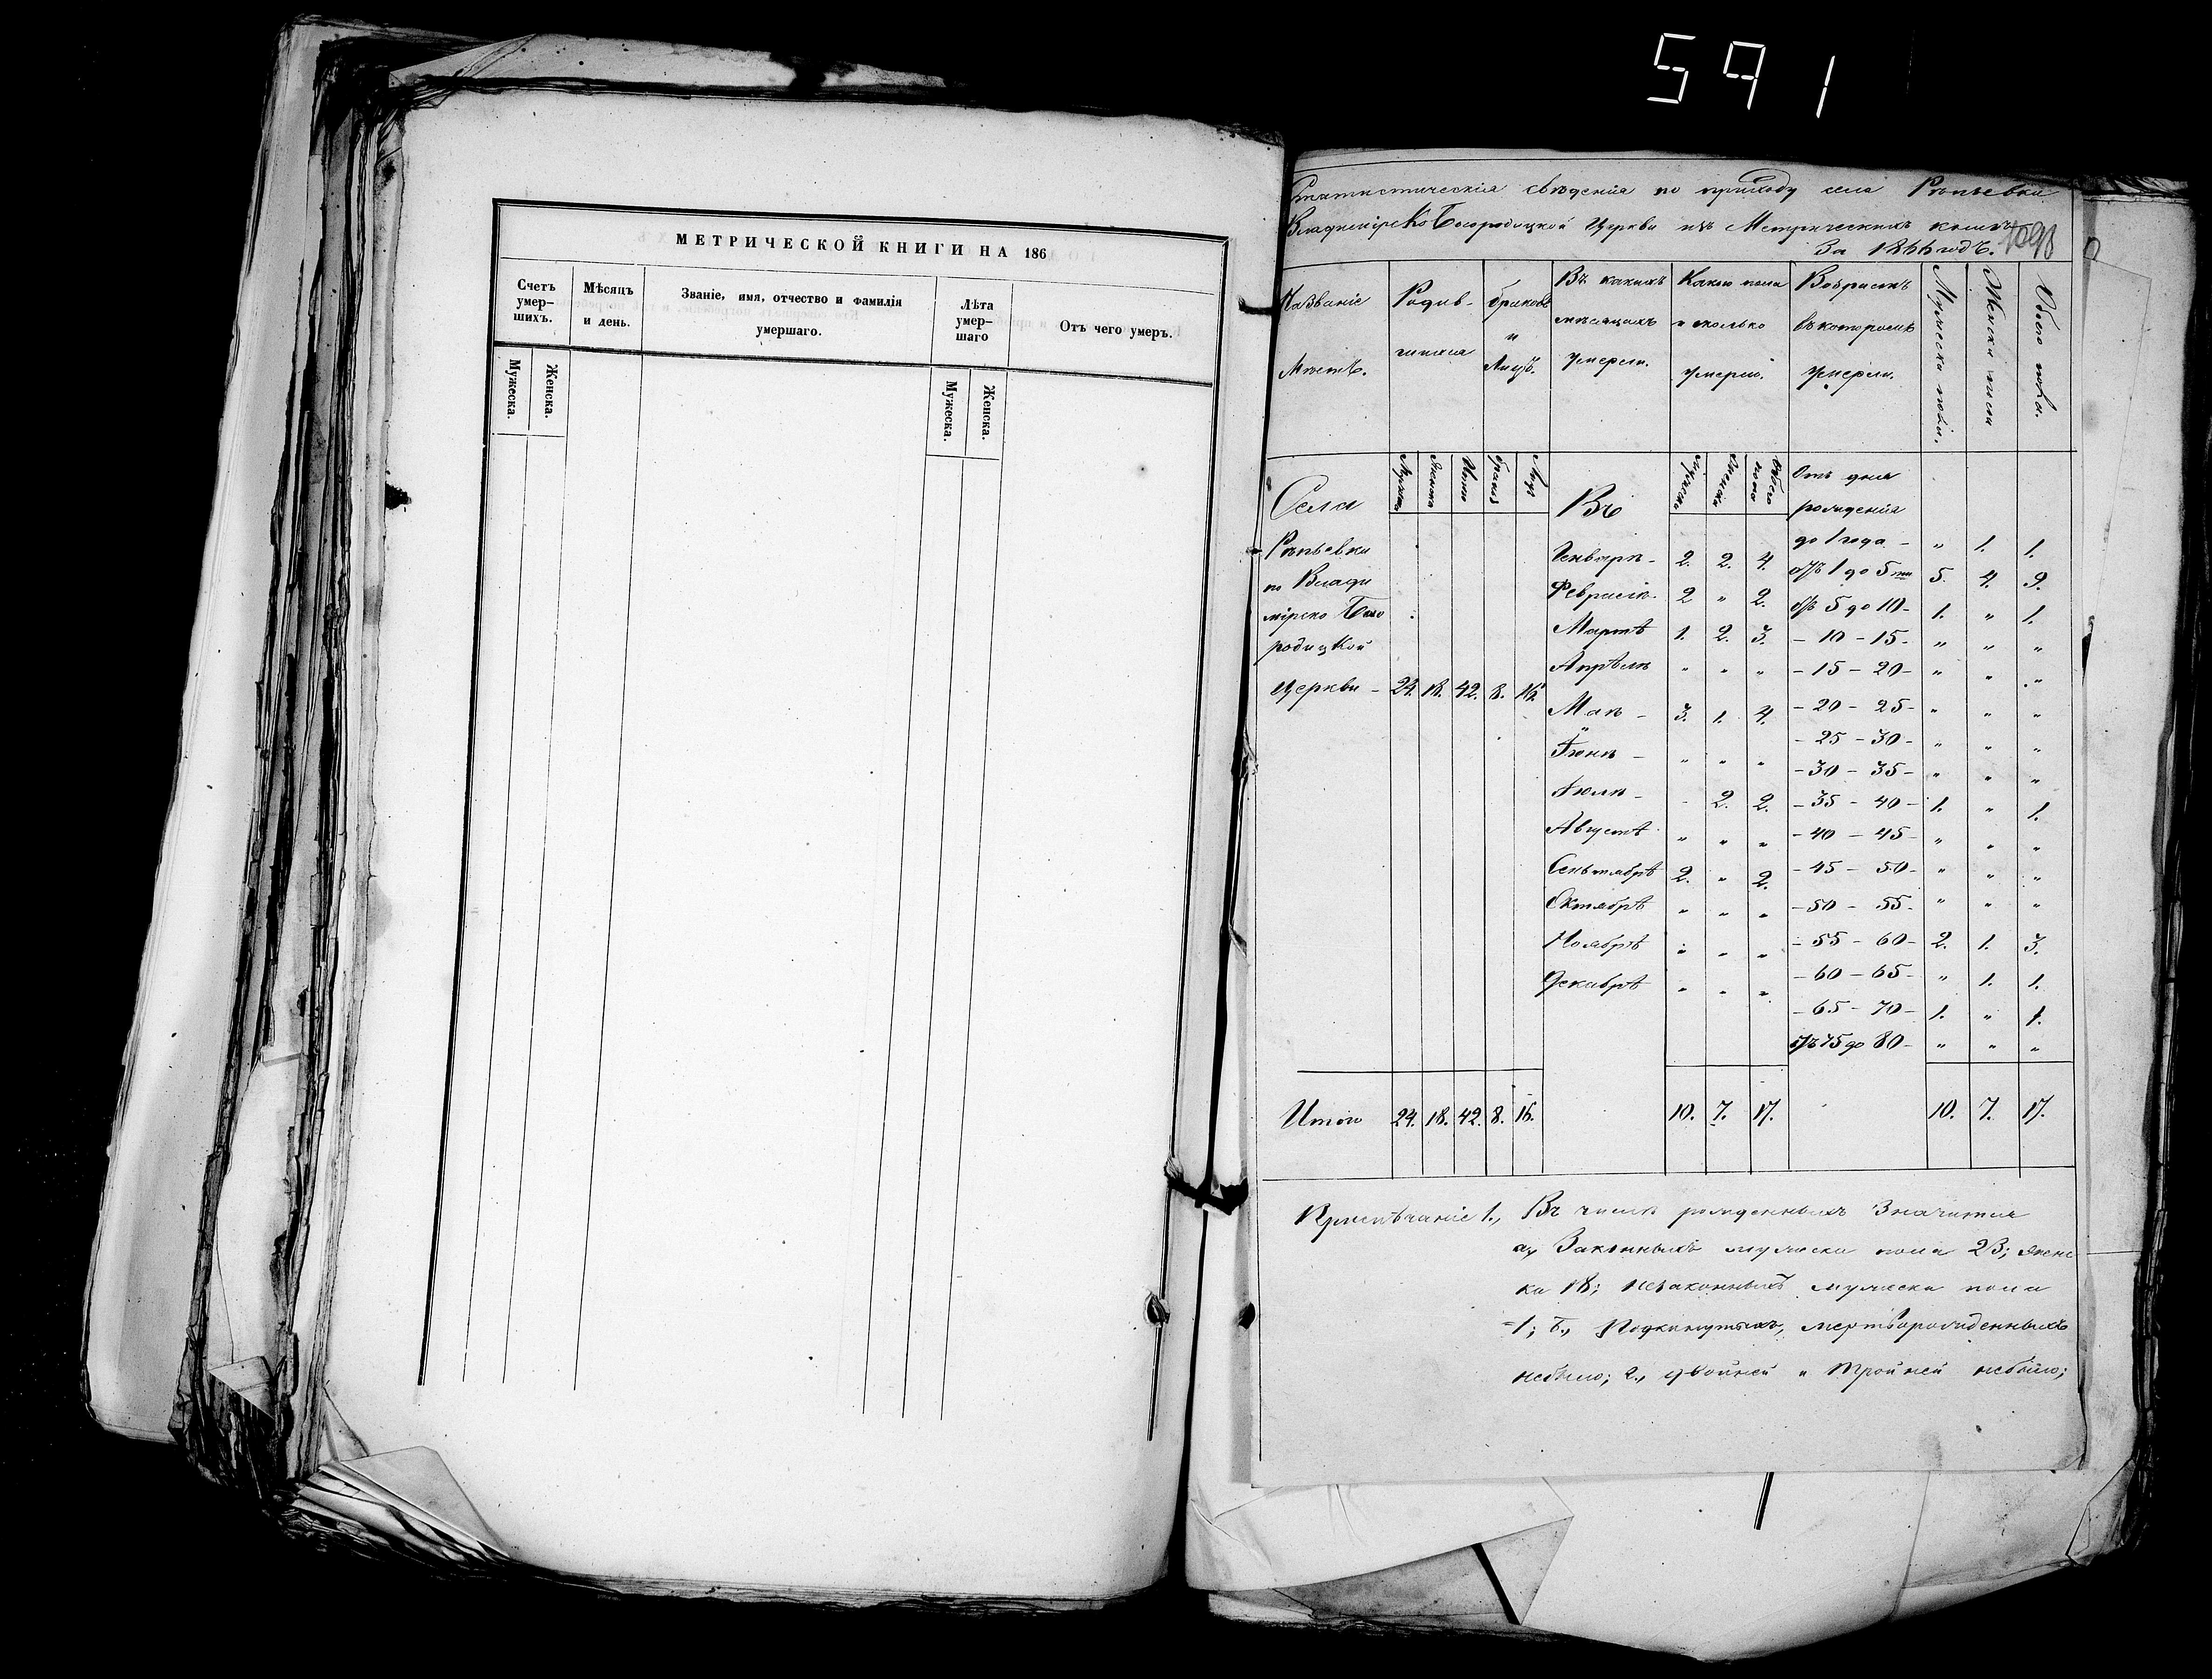 591
МЕТРИЧЕСКОЙ КНИГИ НА 186
Счетъ умер- шихъ.
Мѣсяцъ и день.
Званіе, имя, отчество и фамилія умершаго.
Лѣта умер- шаго
Отъ чего умеръ.
Мужеска.
Женска.
Мужеска.
Женска.
Статистическія свѣдѣнія по приходу села Рѣпьевки
Владимірско Богородицкой Церкви изъ Метрическихъ книгъ
За 1866 годъ.
Названіе Мѣстъ.
Родив- шихся
браковъ и Лицъ.
Въ какихъ мѣсяцахъ умерли.
Какого пола и сколько умерло.
Возрастъ въ которомъ умерли.
Мужеска пола.
Женска пола
Обоего пола.
Села
Рѣпьевки
по Влади
мірско Бого
родицкой
Церкви - 24. 18. 42. 8. 16.
Въ
Генварѣ - 2. 2. 4.
Февралѣ - 2 " 2.
Мартѣ 1. 2. 3.
Апрѣлѣ " " "
Маѣ - 3. 1. 4.
Іюнѣ - " " "
Іюлѣ - - 2. 2.
Августѣ " " "
Сентябрѣ 2. " 2.
Октябрѣ " " "
Ноябрѣ " " "
Декабрѣ " " "
Отъ дня
рожденія
до 1 года - " 1. 1.
отъ 1 до 5ти 5. 4. 9.
отъ 5 до 10 - 1. " 1.
- 10 - 15 - " " "
- 15 - 20 - " " "
- 20 - 25 - " " "
- 25 - 30 - " " "
- 30 - 35 - " " "
- 35 - 40 - 1. " 1.
- 40 - 45 - " " "
- 45 - 50 - " " "
- 50 - 55 - " " "
- 55 - 60 - 2. 1. 3.
- 60 - 65 - " 1. 1.
- 65 - 70 - 1. " 1.
отъ 75 до 80 - " " "
Итого 24. 18. 42. 8. 16. 10. 7. 17. 10. 7. 17.
Примѣчаніе 1., Въ числѣ рожденныхъ Значится
а., Законныхъ мужеска пола 23; женс
ка 18; незаконныхъ мужеска пола
-1; б., Подкинутыхъ, мертворожденныхъ
небыло; 2., двойней и Тройней небыло;